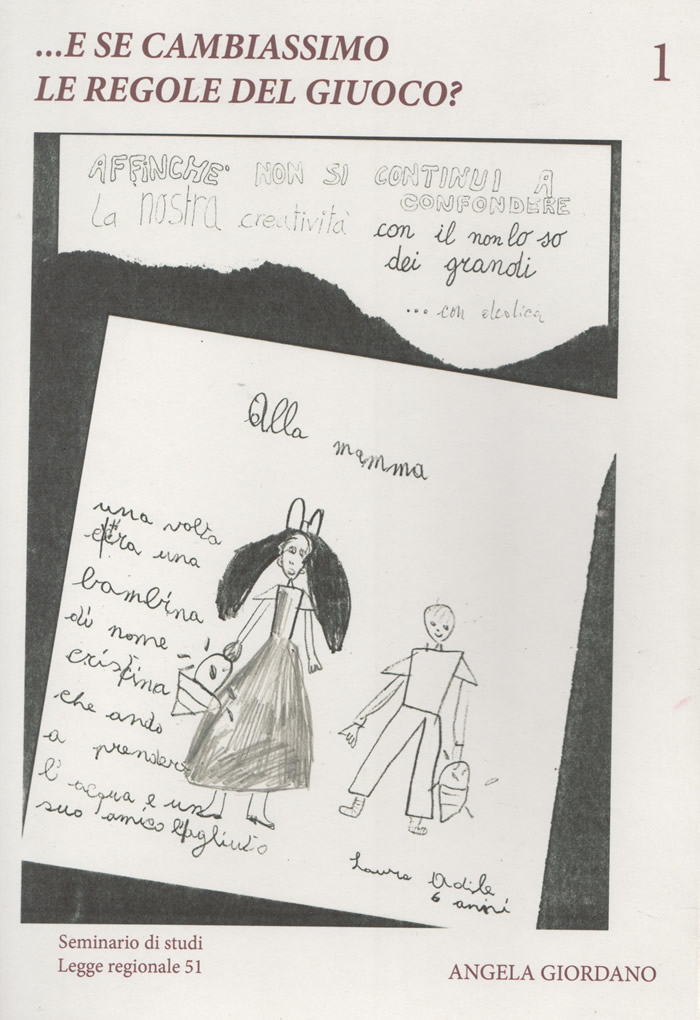 ...E SE CAMBIASSIMO
LE REGOLE DEL GIUOCO?
1
AFFINCHE' NON SI CONTINUI A
CONFONDERE
la nostra creatività con il non lo so
dei grandi
... con
Alla mamma
una volta
era una
bambina
di nome
cristina
che ando
a prendere
l'acqua e un
suo amico l'agliuto
Laura Odile
6 anni
Seminario di studi
Legge regionale 51
ANGELA GIORDANO